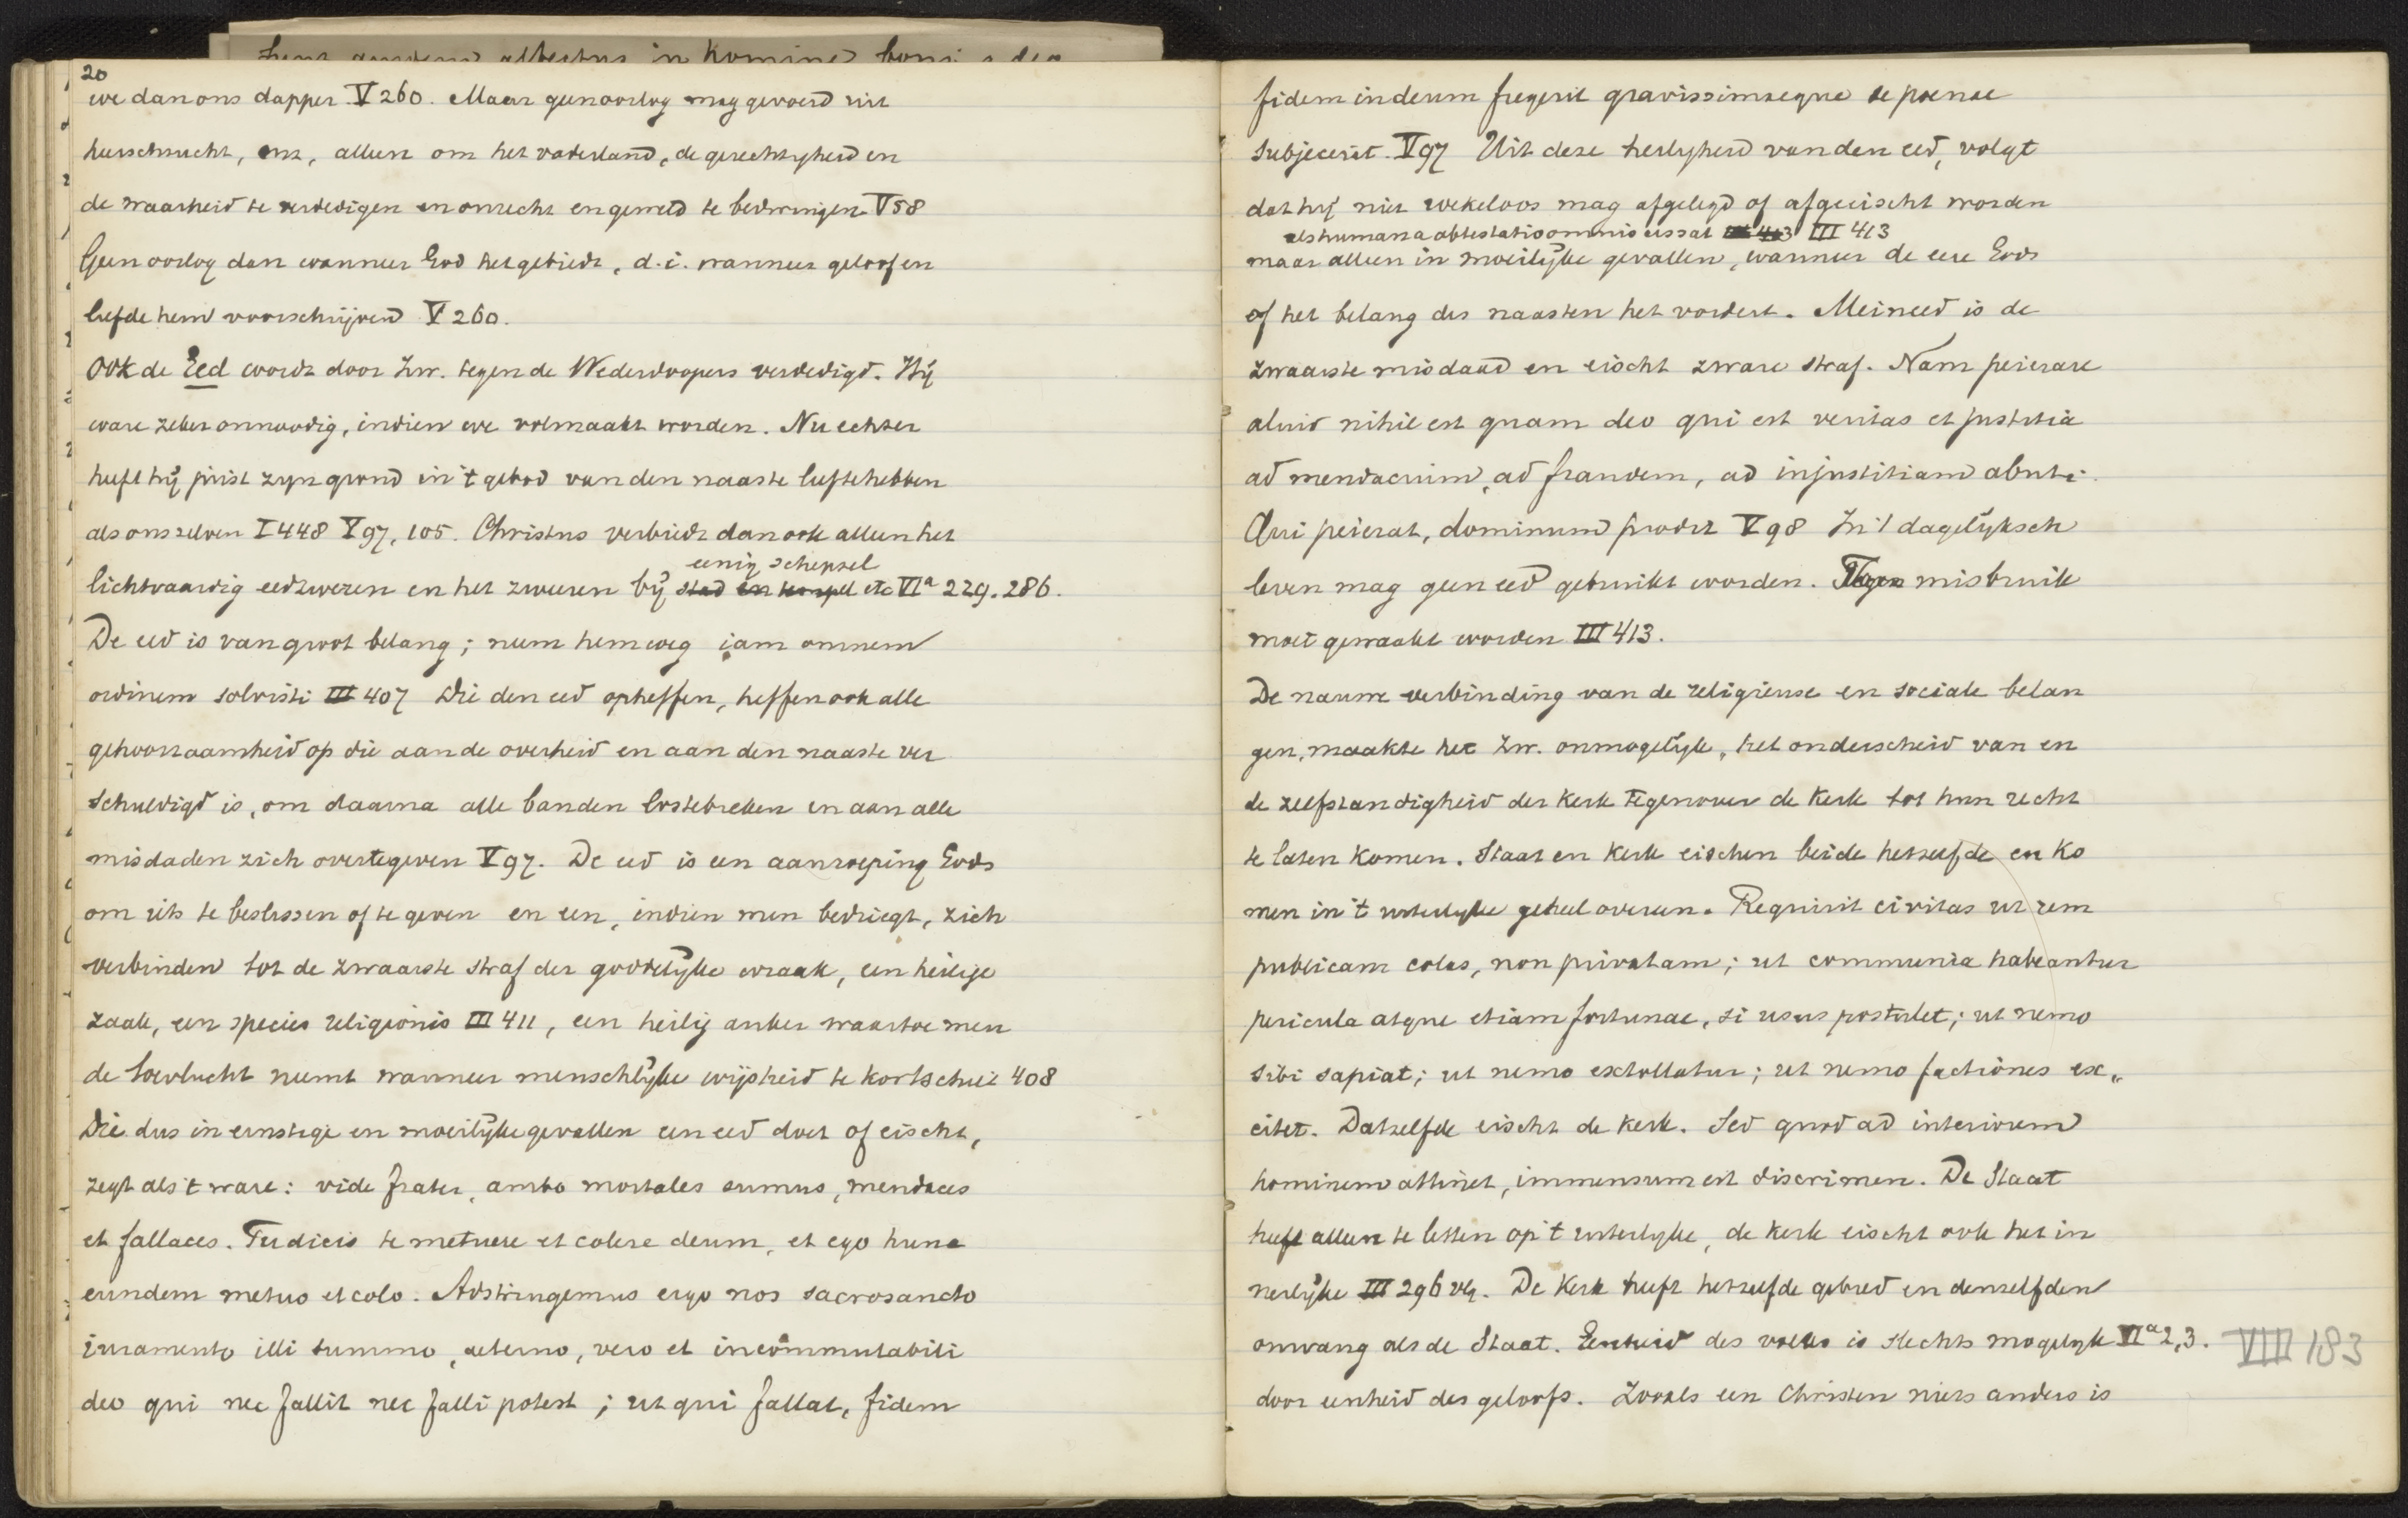 20
we dan ons dapper V 260. Maar geen oorlog mag gevoerd uit
heerschzucht, enz, alleen om het vaderland, de gerechtigheid en
de waarheid te verdedigen en onrecht en geweld te bedwingen V 58
Geen oorlog dan wanneer God het gebiedt, d.i. wanneer geloof en
liefde hem voorschrijven V 260.
Ook de Eed wordt door Zw. tegen de Wederdoopers verdedigd. Hij
ware zeker onnoodig, indien we volmaakt worden. Nu echter
heeft hij juist zyn grond in 't gebod van den naaste lief te hebben
als ons zelven I 448 V 97, 105. Christus verbiedt dan ook alleen het
eenig schepsel
lichtvaardig eedzweren en het zweren bij stad en tempel etc VIa 229. 286.
De eed is van groot belang; neem hem weg iam omnem
ordinem solvisti III 407 Die den eed opheffen, heffen ook alle
gehoorzaamheid op die aan de overheid en aan den naaste ver
schuldigd is, om daarna alle banden los te breken en aan alle
misdaden zich over te geven V 97. De eed is een aanroeping Gods
om iets te beslissen of te geven en een, indien men bedriegt, zich
verbinden tot de zwaarste straf der goddelijke wraak, een heilige
zaak, een species religionis III 411, een heilig anker waartoe men
de toevlucht neemt wanneer menschlijke wijsheid te kort schiet 408
Die dus in ernstige en moeilijke gevallen een eed doet of eischt,
zegt als 't ware: vide frater, ambo mortales sumus, mendaces
et fallaces. Tu dicis te metuere et colere deum, et ego hunc
eundem metuo et colo. Adstringemus ergo nos sacrosancto
iuramento illi summo, aeterno, vero et incommutabili
deo qui nec fallit nec falli potest; ut qui fallat, fidem
fidem in deum fregerit gravissimaeque se poenae
subjecerit. V 97 Uit deze heiligheid van den eed, volgt
dat hij niet roekeloos mag afgelegd of afgeeischt worden
als humana obtestatio omnis cessat III 413 III 413
maar alleen in moeilijke gevallen, wanneer de eere Gods
of het belang des naasten het vordert. Meineed is de
zwaarste misdaad en eischt zware straf. Nam peierare
aliud nihil est quam deo qui est veritas et justitia
ad mendacium, ad fraudem, ad injustitiam abuti.
Qui peierat, dominum prodit V 98 In 't dagelijksch
leven mag geen eed gebruikt worden. Tegen misbruik
moet gewaakt worden III 413.
De nauwe verbinding van de religieuse en sociale belan
gen, maakte het Zw. onmogelijk, het onderscheid van en
de zelfstandigheid der Kerk tegenover de Kerk tot hun recht
te laten komen. Staat en Kerk eischen beide hetzelfde en ko
men in 't uiterlijke geheel overeen. Requirit civitas ut rem
publicam colas, non privatam; ut communia habeantur
pericula atque etiam fortunae, si usus postulet; ut nemo
sibi sapiat; ut nemo extollatur; ut nemo factiones ex„
citet. Datzelfde eischt de Kerk. Sed quod ad interiorem
hominem attinet, immensum est discrimen. De Staat
heeft alleen te letten op 't uiterlijke, de Kerk eischt ook het in
nerlijke III 296 vlg. De Kerk heeft hetzelfde gebied en denzelfden
omvang als de Staat. Eenheid des volks is slechts mogelijk VIa 2,3. VIII 183
door eenheid des geloofs. Zooals een Christen niets anders is